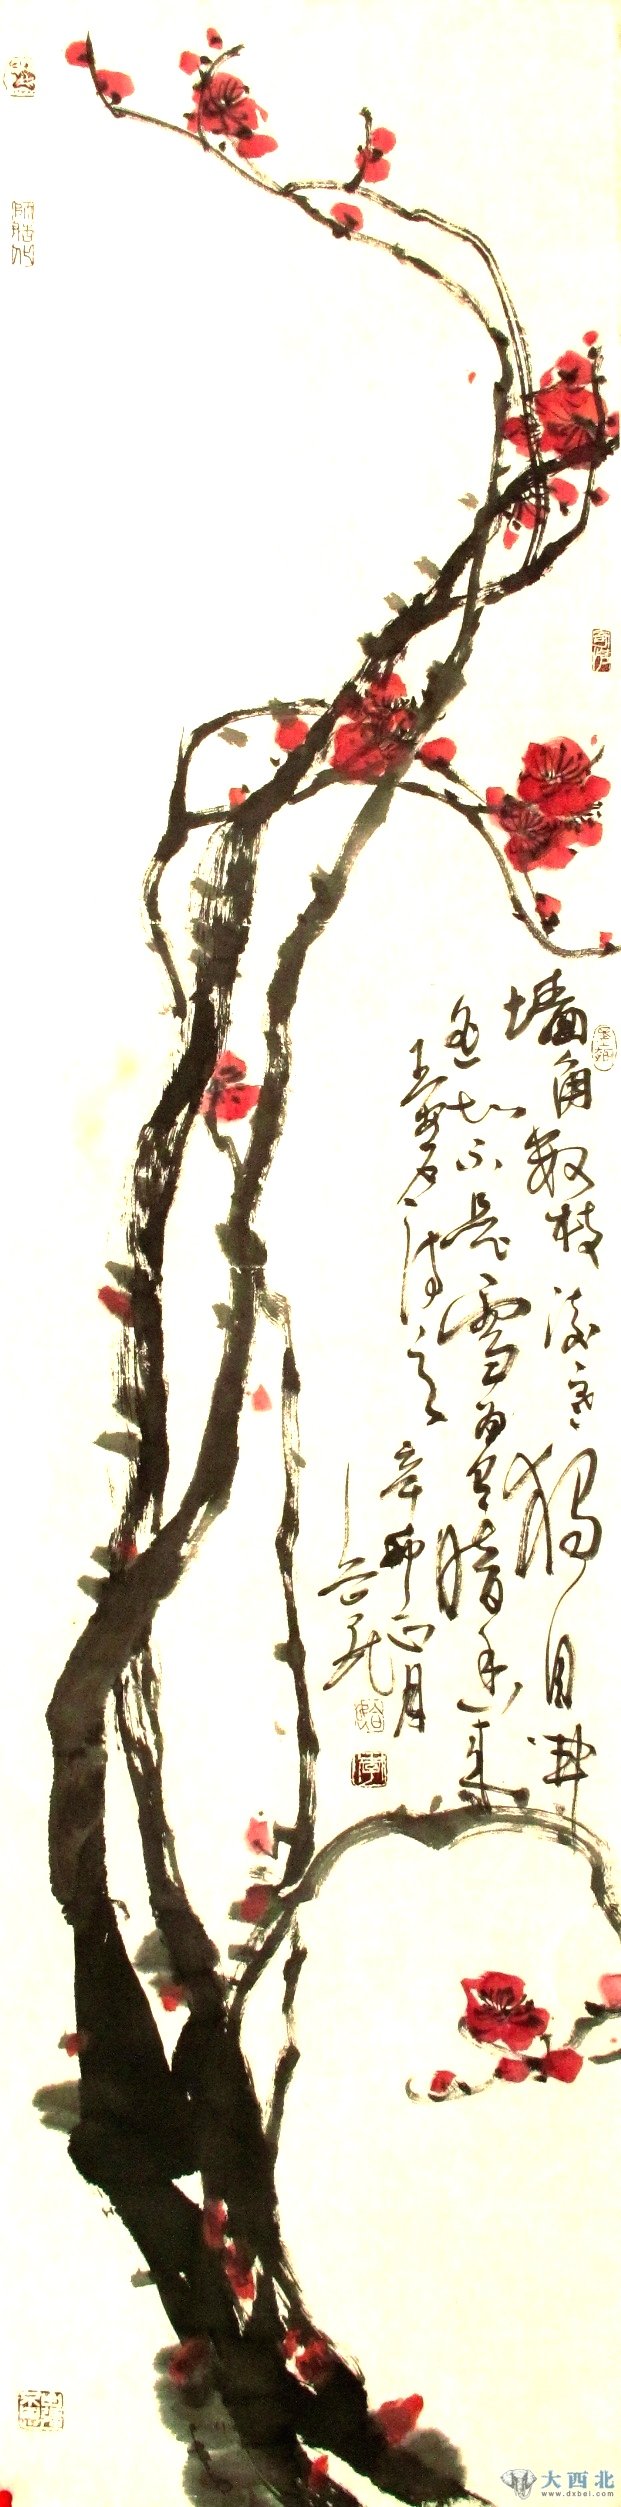 墙角数枝凌寒独自开
遥知不是雪为有暗香来
王安石诗 辛卯正月
大西北
www.dxbei.com